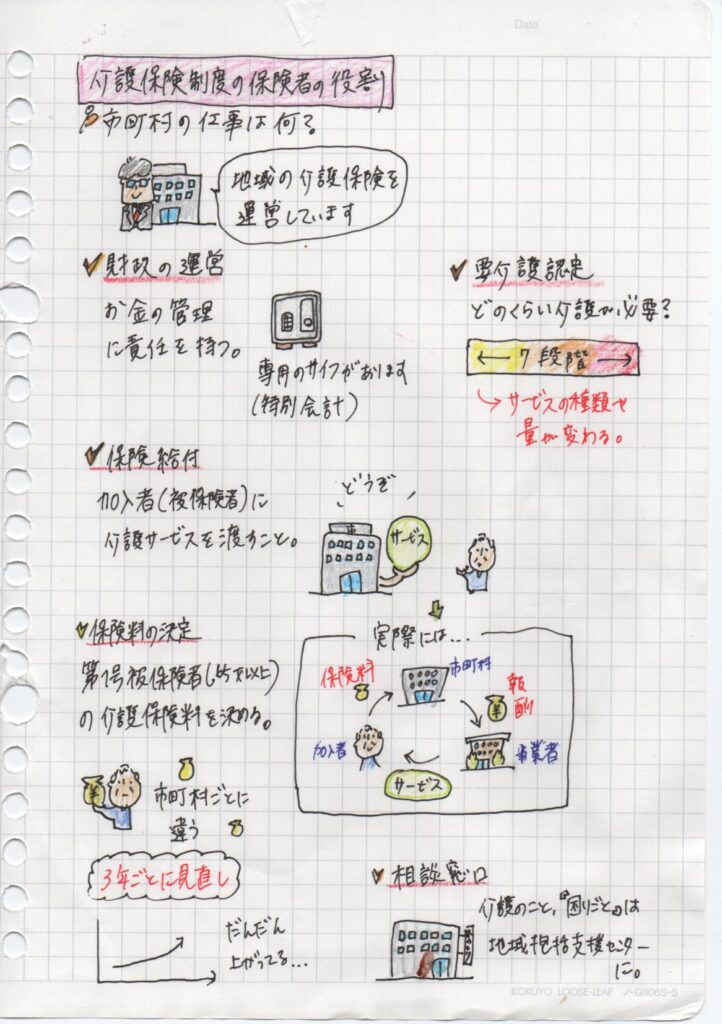 Date
介護保険制度の保険者の役割
市町村の仕事は何?
地域の介護保険を
運営しています
財政の運営
お金の管理
に責任を持つ。
専用のサイフがあります
(特別会計)
要介護認定
どのくらい介護が必要?
← 7段階 →
サービスの種類や
量が変わる。
保険給付
加入者(被保険者)に
介護サービスを渡すこと。
どうぞ
サービス
保険料の決定
第1号被保険者(65才以上)
の介護保険料を決める。
市町村ごとに
違う
3年ごとに見直し
だんだん
上がってる...
実際には...
保険料
市町村
報酬
加入者
事業者
サービス
相談窓口
介護のこと、『困りごと』は
地域包括支援センター
に。
KOKUYO LOOSE-LEAF ノ-G806S-5